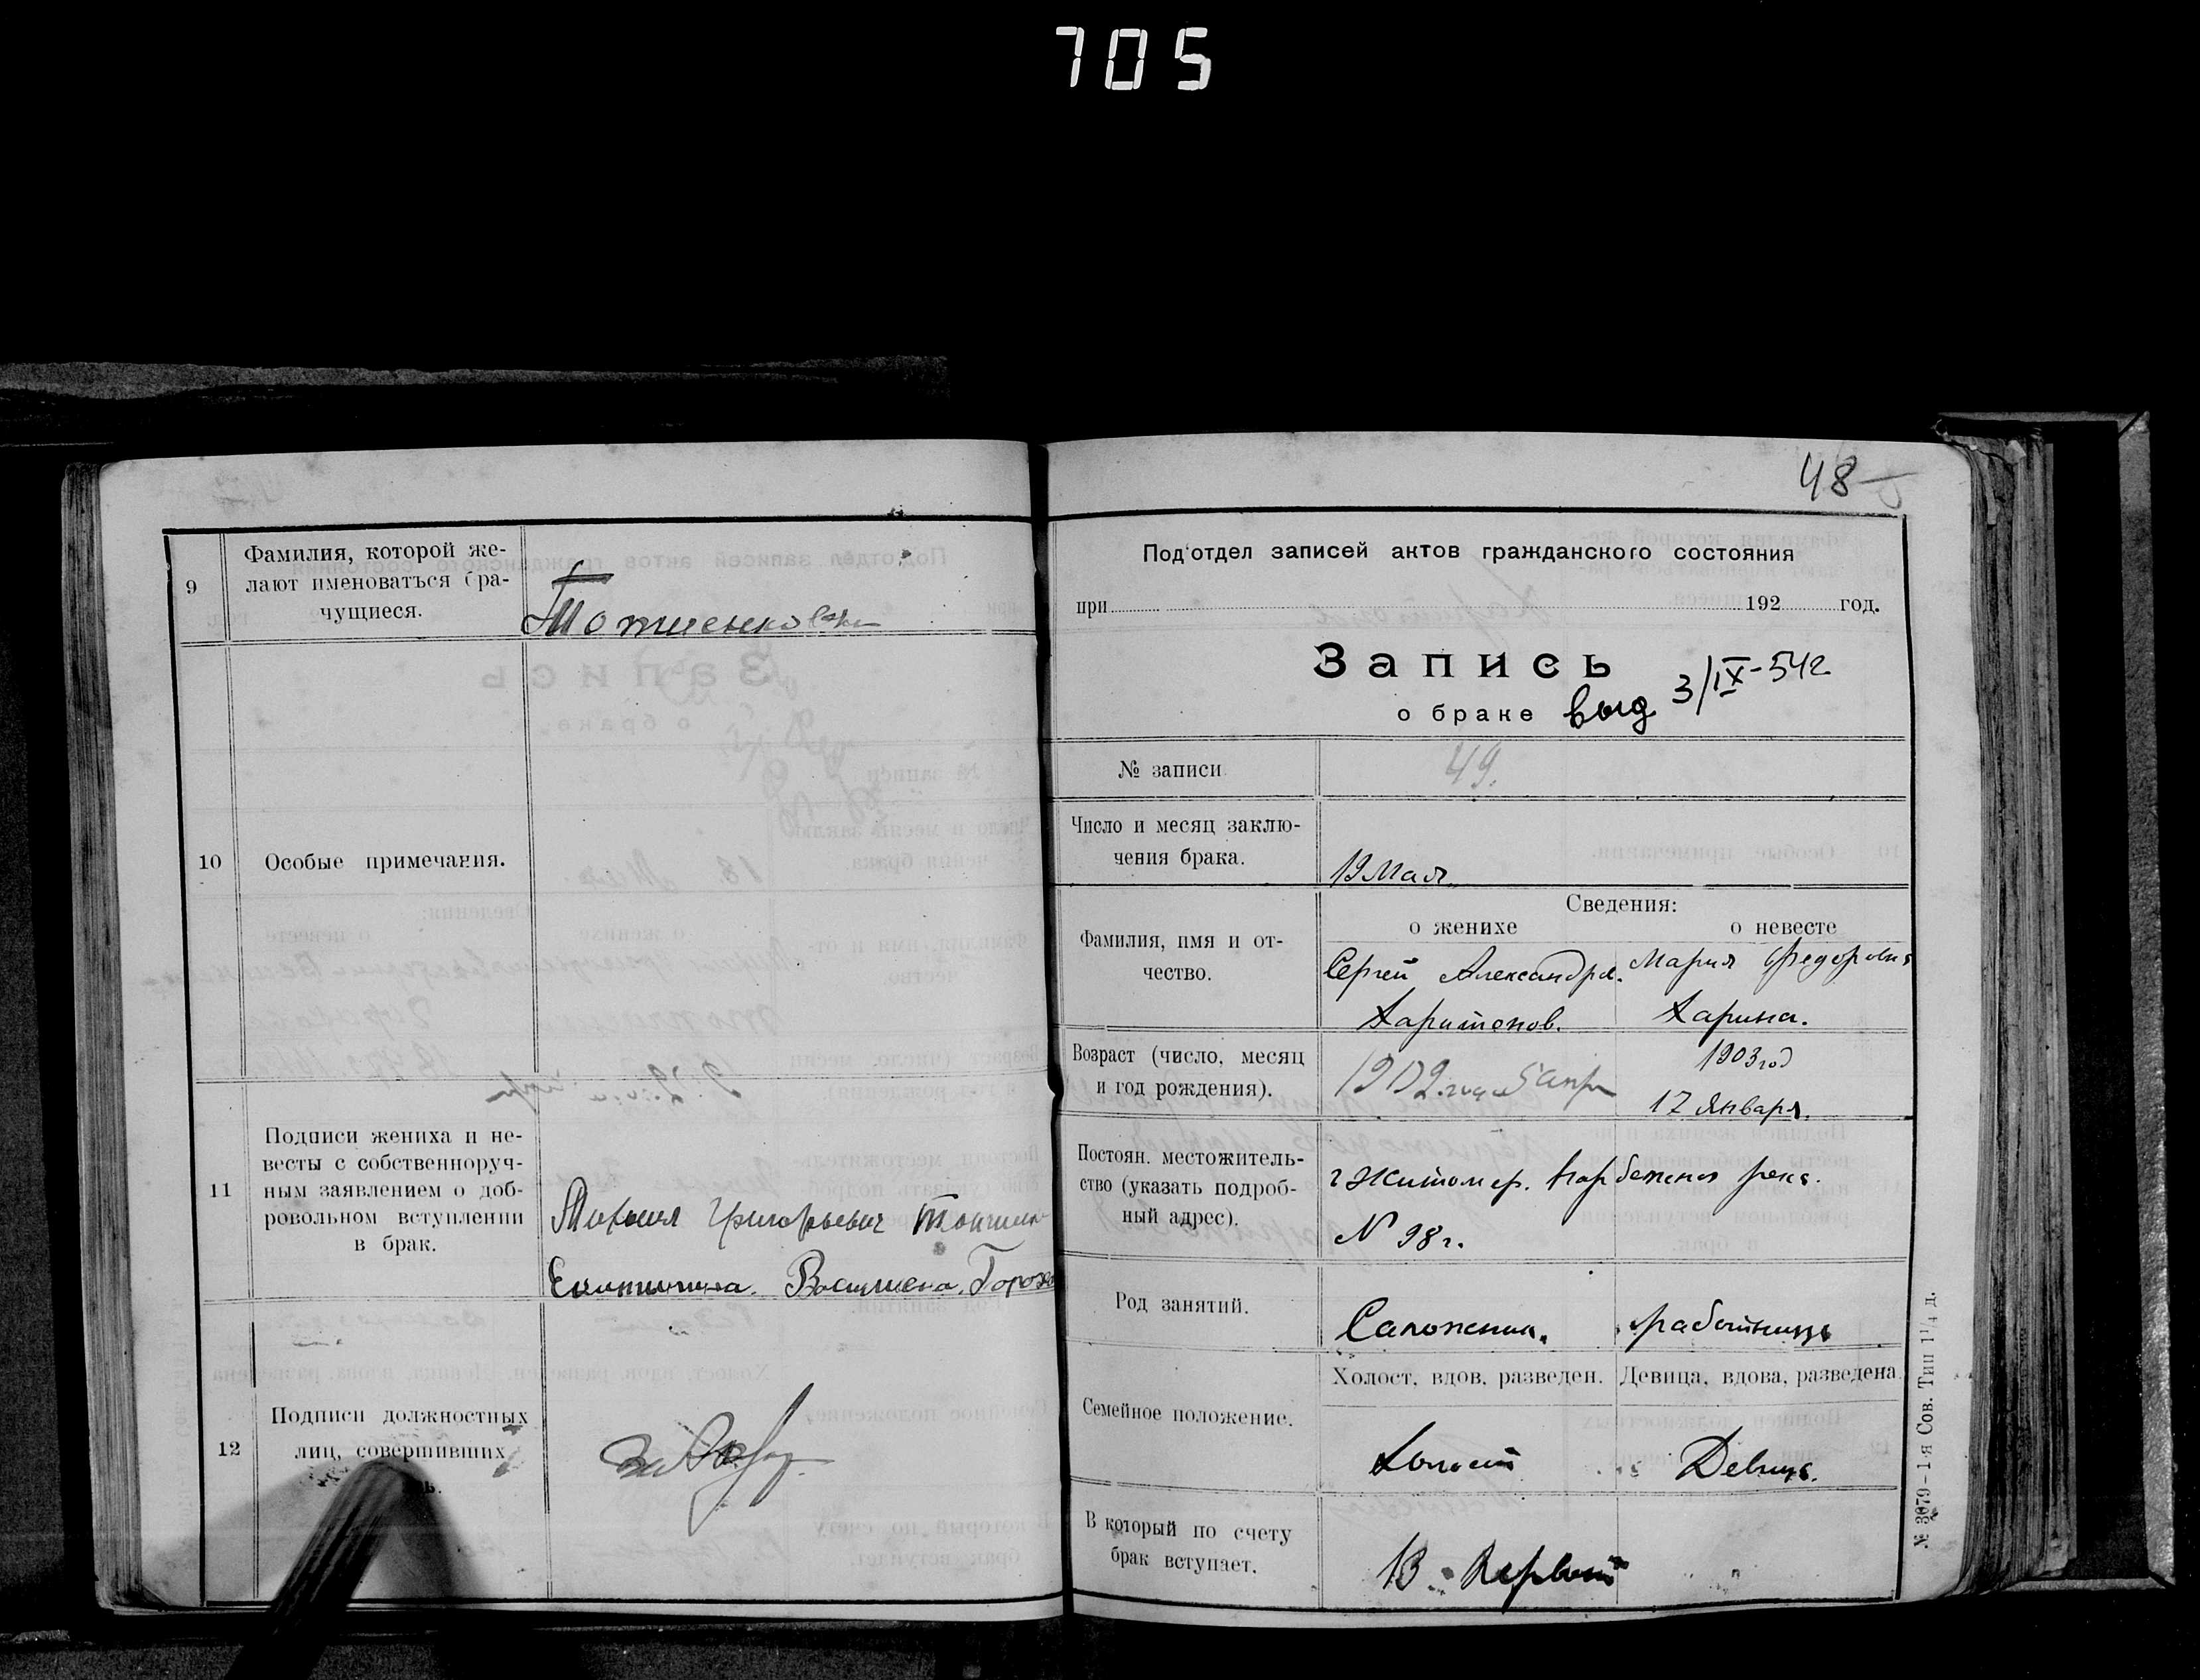 705
9
Фамилия, которой же-
лают именоваться бра-
чущиеся.
10
Особые примечания.
11
Подписи жениха и не-
весты с собственноруч-
ным заявлением о доб-
ровольном вступлении
в брак.
Михаил Григорьевич
12
Подписи должностных
лиц, совершивших
48
Под'отдел записей актов гражданского состояния
при 192 год.
Запись
о браке выд 3/IX-54г
№ записи 49.
Число и месяц заклю-
чения брака.
19 Мая
Сведения:
о женихе о невесте
Фамилия, имя и от-
чество.
Сергей Александров. Мария Федоровна
Харитонов. Харина.
Возраст (число, месяц
и год рождения).
1902 года 5 апр 1903 год
17 Января.
Постоян. местожитель-
ство (указать подроб-
ный адрес).
г Житомир.
N 98г.
Род занятий.
Сапожник. работница
Семейное положение.
Холост, вдов, разведен. Девица, вдова, разведена
Холост Девица.
В который по счету
брак вступает.
В первый "
№ 3079-1-я Сов. Тип 1¹/₄ д.